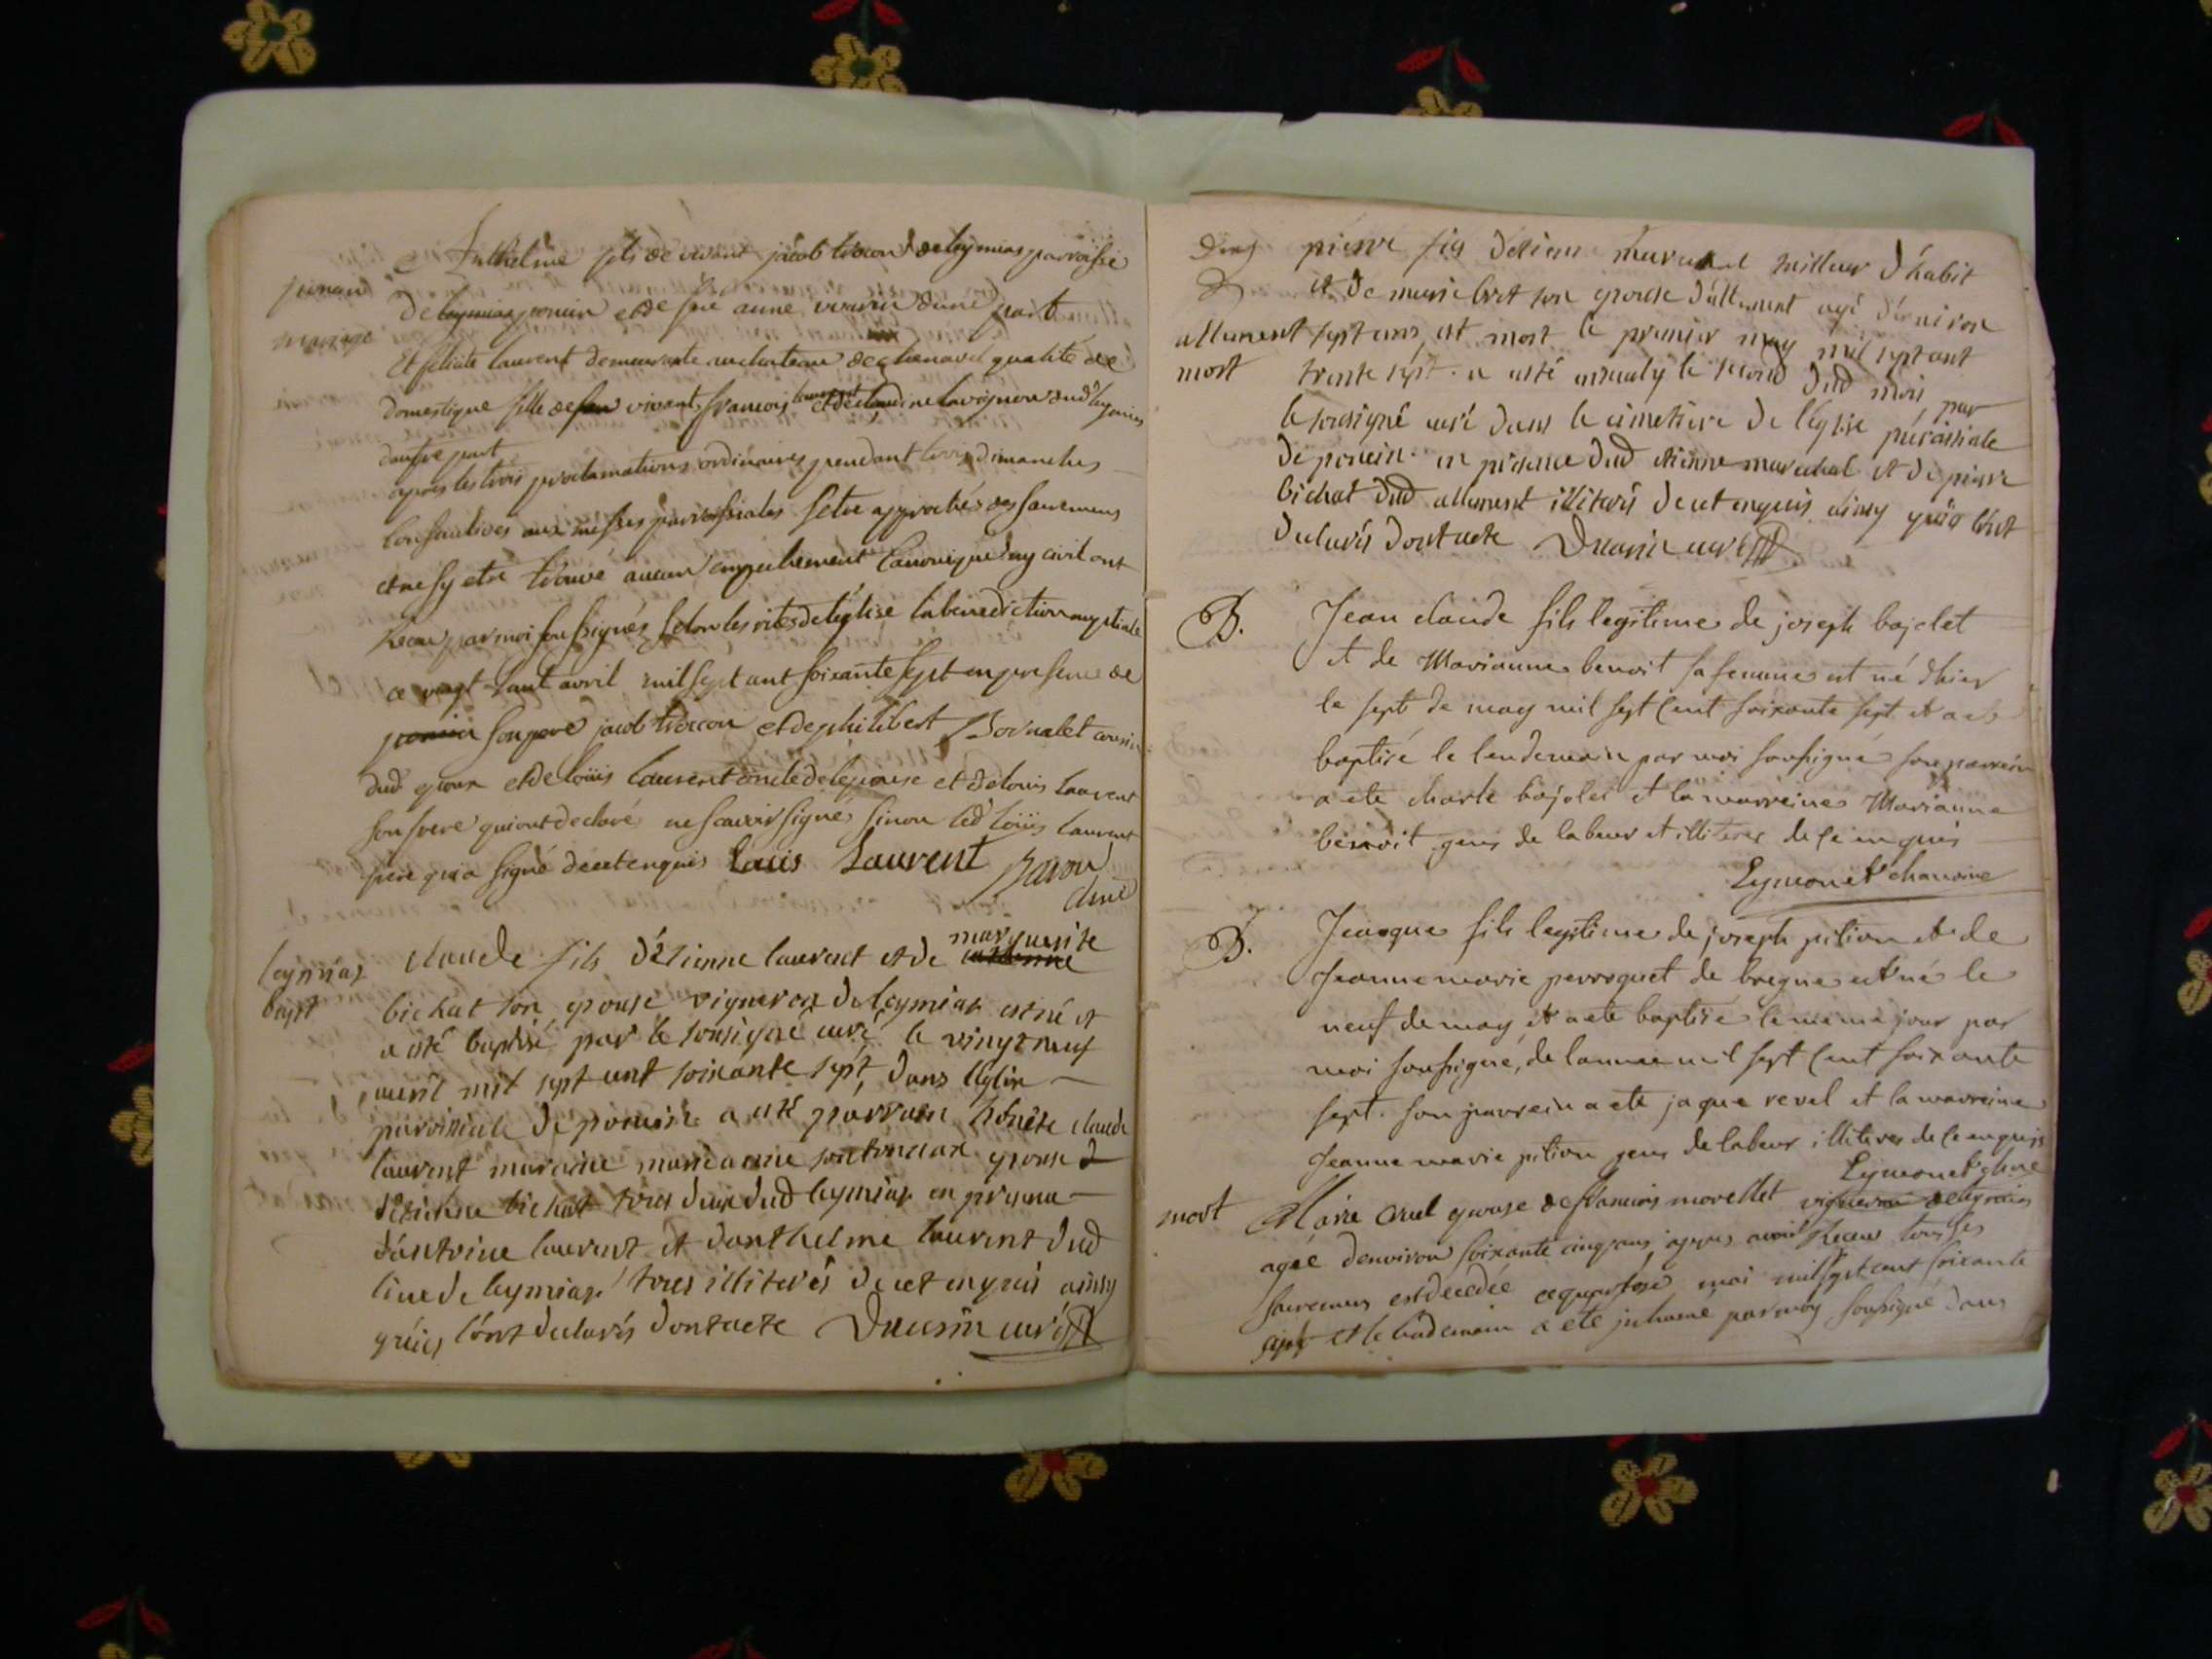 Anthelme fils de vivant jacob troccon de leymiar parroisse
mariage
de poncin et de feu anne vivarin dune part
Et felicite laurent demeurante au chateau de chenavel qualité de
domestique fille de vivant francois laurent et de claudine lavrignon dud leymiar
dautre part
apres les trois proclamations ordinaires pendant trois dimanches
consecutives aux messes parroissiales setre approchés des sacremens
et ne sy etre trouvé aucun empechement canonique duy civil ont
Receu par moi soussignés selon les rites de léglise la benediction nuptiale
ce vingt huit avril mil sept cent soixante sept en presence de
son pere jacob troccon et de philibert Bornalet cousin
dud epoux et de loüis laurent oncle de lepouse et de louis laurent
son frere qui ont declaré ne scavoir signé sinon led loüis laurent
pere qui a signé de ce enquis Louis Laurent Savon
chne
leymiar
bapt
claude fils d'étienne laurent et de marguerite
bichat son epouse vigneron de leymiar est né et
a eté baptisé par le sousigné curé le vingt neuf
avril mil sept cent soixante sept, dans leglise
paroissiale de poncin a eté parrain honète claude
laurent maraine marieanne epouse d
détienne bichat tous deux dud leymiar en presence
dantoine laurent et danthelme laurent dud
lieu de leymiar tous illiterés de cet enquis ainsy
quils lont declarés dont acte Ducsin curé
allement
mort
pierre fis detiene marechal tailleur d'habit
et de marie bret son epouse d'allement agé d'environ
sept ans, est mort le premier may mil sept cent
trente sept. a eté ensevely le second dud mois, par
le sousigné curé dans le cimetiere de léglise paroissiale
de poncin en presence dud etienne marechal et de pierre
bichat dud allement illiterés de cet enquis ainsy quils lont
declarés dont acte Ducsin curé
B.
Jean claude fils legitime de joseph bajolet
et de Marianne benoit sa femme est né d'hier
le sept de may mil sept cent soixante sept et a ete
baptisé le lendemain par moi soussigné son parrein
a ete charle bajolet et la marreine Marianne
benoit gens de labeur et illiteres de ce enquis
Eymonet chanoine
B.
Jeacque fils legitime de joseph pition et de
Jeanne marie perroquet de bregne est né le
neuf de may et a ete baptisé le meme jour par
moi soussigné, de lannee mil sept cent soixante
sept. son parrein a ete jaque revel et la marreine
Jeanne marie pition gens de labeur illiteres de ce enquis
Eymonet chne
mort
Marie cruel epouse de francois morellet vigneron de leymiar
agée denviron soixante cinq ans apres avoir Receu tous ses
sacremens est decedée ce quatorze mai mil sept cent soixante
sept et le lendemain a ete inhumé par moy soussigné dans